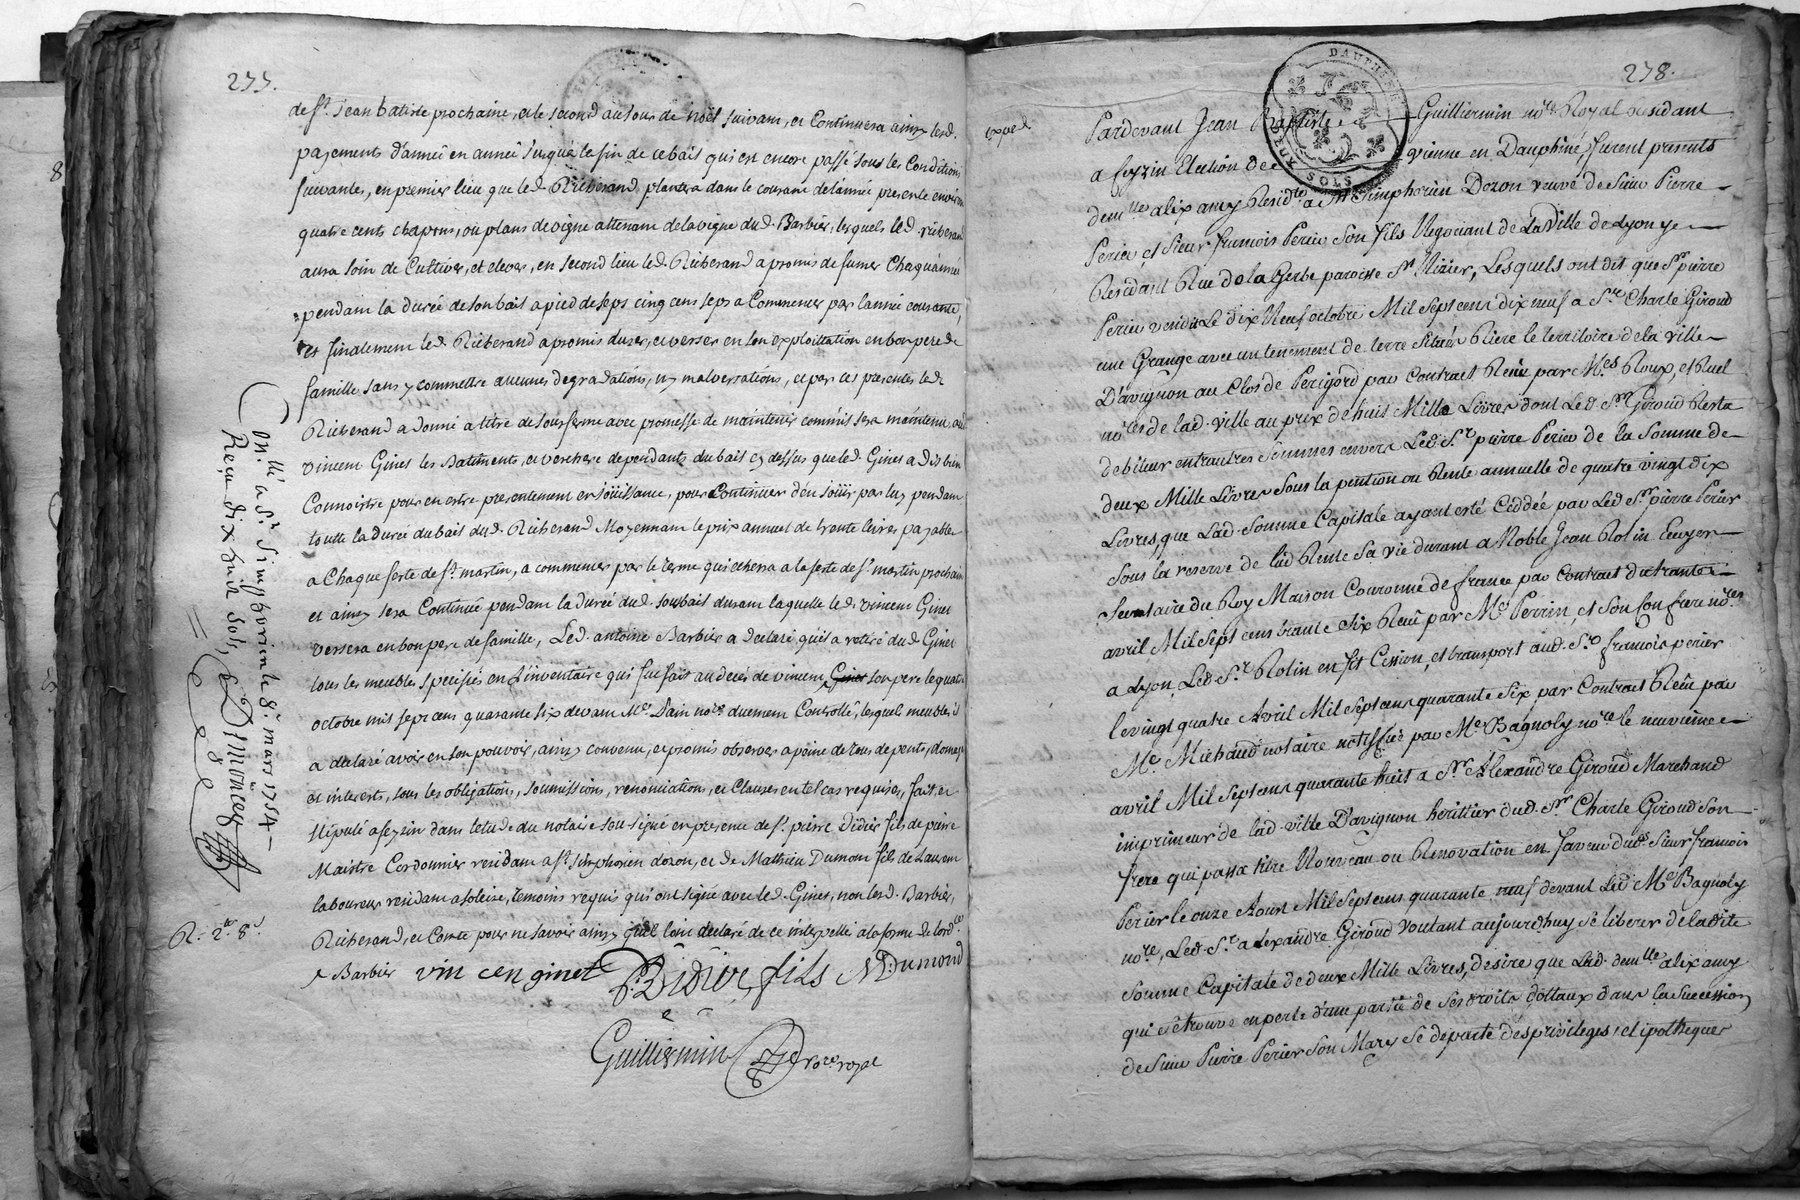 277.
de St Jean batiste prochaine, et le second au jour de noël suivant, et Continuera ainsy lesd.
payements d'année en année jusqu'a la fin de ce bail qui est encore passé sous les Conditions
suivantes, en premier lieu que led. Richerand plantera dans le courant de l'année presente environ
quatre cents chapons, ou plans de vigne attenant de la vigne dud. Barbier, lesquels led. richerand
aura soin de Cultiver, et elever, en second lieu led. Richerand a promis de fumer Chaqu'année
pendant la durée de son bail a pied de seps cinq cens seps a Commencer par l'année courante,
et finalement led. Richerand a promis d'user, et verser en son exploittation en bon pere de
famille sans y commettre aucunes degradations, ny malversations, et par ces presentes led.
Richerand a donné a titre de sousferme avec promesse de maintenir comm'il sera maintenu, aud.
vincent Ginet les Batiments, et verchere dependants du bail cy dessus que led. Ginet a dit bien
Connoistre pour en estre presentement en joüissance, pour Continuer d'en joüir par luy pendant
toutte la durée du bail dud. Richerand Moyennant le prix annuel de trente livres payable
a Chaque feste de St. martin, a commencer par le terme qui echerra a la feste de St martin prochain
et ainsy sera Continué pendant la durée dud. sousbail durant laquelle led. vincent Ginet
versera en bon pere de famille, Led. antoine Barbier a declaré qu'il a retiré dud. Ginet
tous les meubles specifiés en L'inventaire qui fut fait au decés de vincent Ginet son pere le quatre
octobre mil sept cens quarante six devant Me. Dain nore. duement Controllé, lesquel meubles il
a declaré avoir en son pouvoir, ainsy convenu, et promis observer a peine de tous depents, domages
et interests, sous les obligations, soumissions, renonciations, et Clauses en tel cas requises, fait, et
stipulé a feyzin dans l'etude du notaire sousigné en presence de Sr. pierre Didier fils de pierre
Maistre Cordonnier residant a St. simphorien dozon, et de Mathieu Dumont fils de Laurent
laboureur residant a solaize, temoins requis qui ont signé avec led. Ginet, non lesd. Barbier,
Richerand, et Comte pour ne savoir ainsy qu'il l'ont declaré de ce interpellé a la forme de l'ord.ce
Barbier vincen ginet P. Didier fils M Dumond
Guilliermin nore. royal
Con.llé a St. Simphorin le 8e. mars 1754
Reçu dix huit sols,
R. 2# 8s.
278.
exped
Pardevant Jean Baptiste Guilliermin nore. Royal residant
a feyzin Election de vienne en Dauphiné, furent presents
demlle alix amy Residte a St Simphorien Dozon veuve de Sieur Pierre
Perier, et Sieur francois Perier Son fils Negociant de La Ville de Lyon y
Residant Rue de la Gerbe paroisse St Nizier, Lesquels ont dit que Sr. pierre
Perier vendit Le dix Neuf octobre Mil Sept cens dix neuf a Sr. Charle Giroud
une Grange avec un tenement de terre Situés Riere le territoire de la ville
D'avignon au Clos de Perigord par Contract Reçu par Mes Roux, et Ruel
nores de lad. ville au prix de huit Mille Livres dont Led Sr Giroud Resta
debiteur entr'autres Sommes envers Led. Sr. pierre Perier de la Somme de
deux Mille Livres Sous la pention ou Rente annuelle de quatre vingt dix
Livres, que Lad. Somme Capitale ayant esté Ceddée par Led Sr. pierre Perier
Sous la reserve de lad Rente Sa vie durant a Noble Jean Rolin Ecuyer
Secretaire du Roy Maison Couronne de france par Contract du trante
avril Mil Sept cens trante Six Reçu par Me Perrin, et Son Confrere nores
a Lyon, Led. Sr. Rolin en fit Cession, et transport aud. Sr. francois perier
le vingt quatre Avril Mil Sept cens quarante Six par Contract Reçu par
Me. Michaud notaire notiffié par Me. Bagnoly nore. le neuvieme
avril Mil Sept cens quarante huit a Sr. Alexandre Giroud Marchand
imprimeur de lad. ville D'avignon herittier dud. Sr. Charle Giroud Son
frere qui passa titre Nouveau ou Renovation en faveur dud. Sieur francois
Perier le onze Aoust Mil Sept cens quarante neuf devant Led. Me. Bagnoly
nore, Led. Sr. alexandre Giroud voulant aujourdhuy Se liberer de la dite
Somme Capitale de deux Mille Livres, desire que Lad. demlle alix amy
qui Se trouve en perte d'une partie de Ses droits dottaux dans la Succession
de Sieur Pierre Perier Son Mary Se departe des privileges, et ipotheques